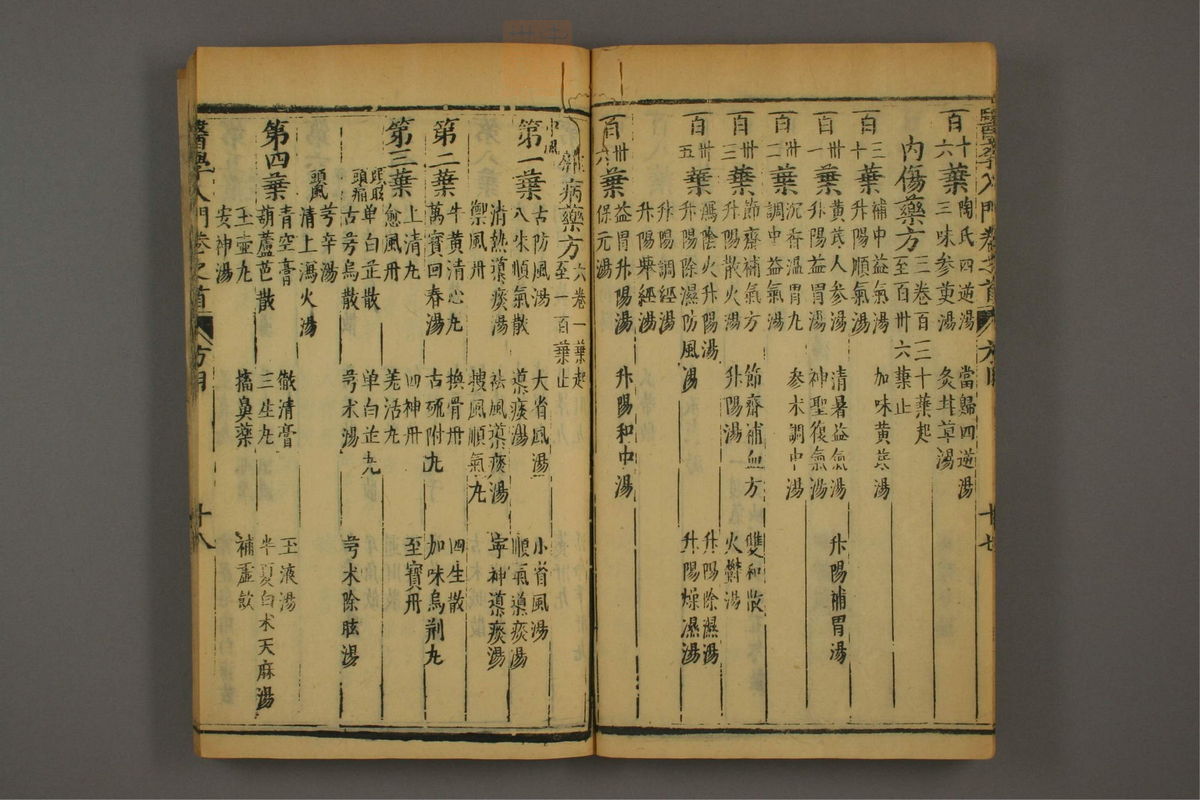 醫學入門卷之首 方目 十七
百十六葉 陶氏四逆湯 當歸四逆湯
三味參萸湯 灸甘草湯
內傷藥方 三卷百三十葉起
至百卅六葉止
百三十葉 補中益氣湯 加味黃芪湯
升陽順氣湯
百卅一葉 黃芪人參湯 清暑益氣湯 升陽補胃湯
升陽益胃湯 神聖復氣湯
百卅二葉 沉香溫胃丸 參朮調中湯
調中益氣湯
百卅三葉 節齋補氣方 節齋補血方 雙和散
升陽散火湯 升陽湯 火鬱湯
百卅五葉 瀉陰火升陽湯 升陽除濕湯
升陽除濕防風湯 升陽燥濕湯
升陽調經湯
升陽舉經湯
百卅六葉 益胃升陽湯 升陽和中湯
保元湯
雜病藥方 六卷一葉起
至一百葉止
中風
第一葉 古防風湯 大省風湯 小省風湯
八味順氣散 導痰湯 順氣導痰湯
清熱導痰湯 祛風導痰湯 寧神導痰湯
禦風丹 搜風順氣丸
第二葉 牛黃清心丸 換骨丹 四生散
萬寶回春湯 古硫附丸 加味烏荆丸
上清丸 四神丹 至寶丹
第三葉 愈風丹 羌活丸
頭眩 單白芷散 單白芷丸
頭痛 古芎烏散 芎朮湯 芎朮除眩湯
芎辛湯
頭風 清上瀉火湯
第四葉 青空膏 徹清膏 玉液湯
葫蘆芭散 三生丸 半夏白朮天麻湯
玉壺丸 搐鼻藥 補虛飲
安神湯
醫學入門卷之首 方目 十八